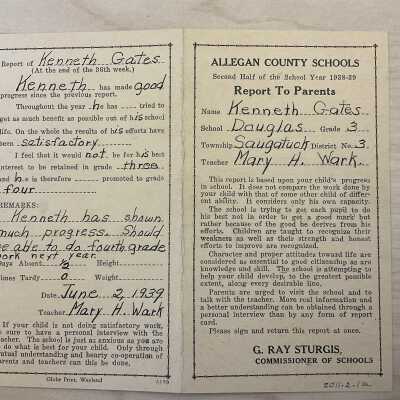 Report of Kenneth Gates
(At the end of the 36th week.)
Kenneth has made good
progress since the previous report.
Throughout the year he has tried to
get as much benefit as possible out of his school
life. On the whole the results of his efforts have
been satisfactory
I feel that it would not be for his best
interest to be retained in grade three
and he is therefore promoted to grade
four
REMARKS:
Kenneth has shown
much progress. Should
be able to do fourth grade
work next year.
Days Absent 1/2 Height
Times Tardy 0 Weight
Date June 2, 1939
Teacher Mary H. Wark
If your child is not doing satisfactory work,
be sure to have a personal interview with the
teacher. The school is just as anxious as you are
to do what is best for your child. Only through
mutual understanding and hearty co-operation of
parents and teachers can this be done.
Globe Print, Wayland
ALLEGAN COUNTY SCHOOLS
Second Half of the School Year 1938-39
Report To Parents
Name Kenneth Gates
School Douglas Grade 3
Township Saugatuck District No. 3
Teacher Mary H. Wark
This report is based upon your child's progress
in school. It does not compare the work done by
your child with that of some other child of differ-
ent ability. It considers only his own capacity.
The school is trying to get each pupil to do
his best not in order to get a good mark but
rather because of the good he derives from his
efforts. Children are taught to recognize their
weakness as well as their strength and honest
efforts to improve are recognized.
Character and proper attitudes toward life are
considered as essential to good citizenship as are
knowledge and skill. The school is attempting to
help your child develop, to the greatest possible
extent, along every desirable line.
Parents are urged to visit the school and to
talk with the teacher. More real information and
a better understanding can be obtained through a
personal interview than by any form of report
card.
Please sign and return this report at once.
G. RAY STURGIS,
COMMISSIONER OF SCHOOLS